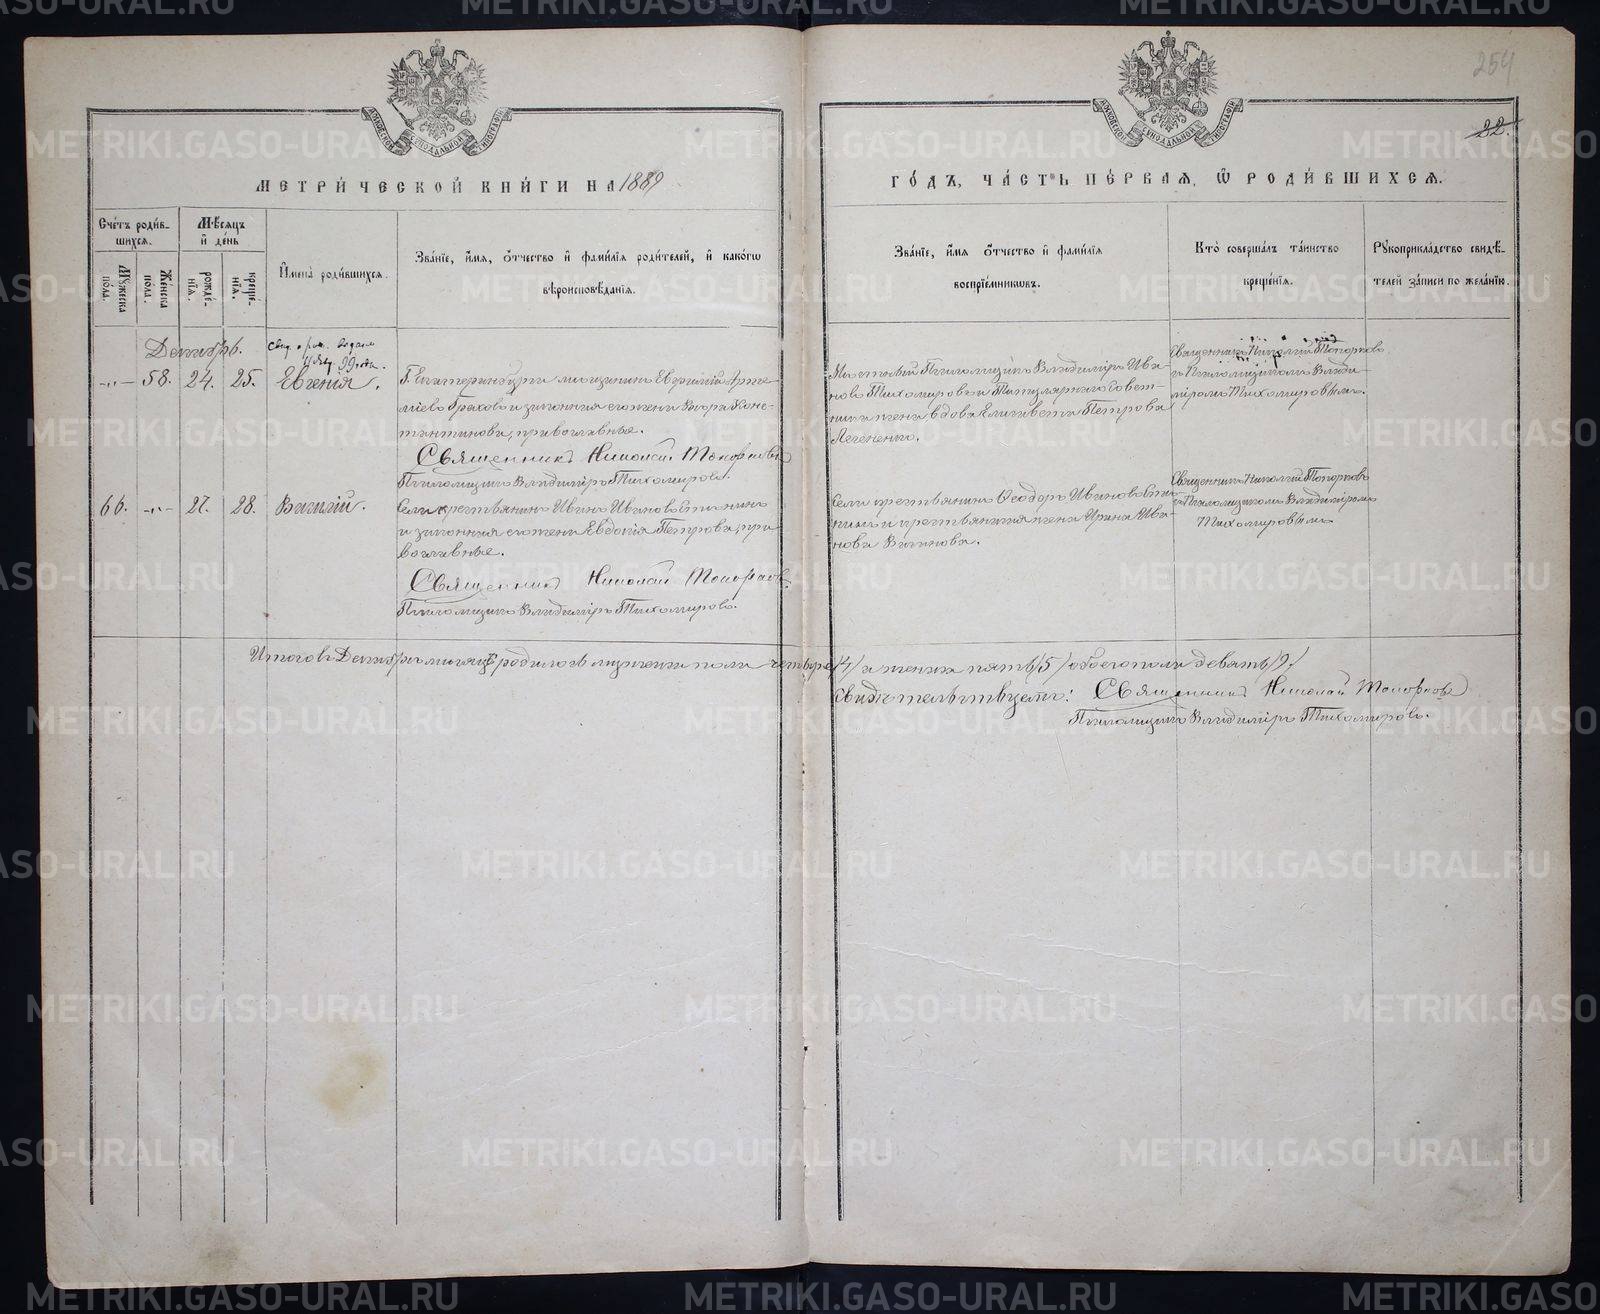 254
22.
МОСКОВСКОЙ СѴНОДАЛЬНОЙ ТИПОГРАФІИ
МОСКОВСКОЙ СѴНОДАЛЬНОЙ ТИПОГРАФІИ
МЕТРИ́ЧЕСКОЙ КНИ́ГИ НА 1889
ГО́ДЪ, ЧА́СТЬ ПЕ́РВАЯ, Ѿ РОДИ́ВШИХСЯ.
Сче́тъ роди́в-
шихся.
Му́жеска
по́ла.
Же́нска
по́ла.
Мѣ́сяцъ
и҆ де́нь
рожде́-
нїя.
креще́-
нїя.
И҆мена̀ роди́вшихся.
Зва́нїе, и҆́мя, ѻ҆́тчество и҆ фами́лїя роди́телей, и҆ како́гѡ
вѣроисповѣ́данїя.
Зва́нїе, и҆́мя ѻ҆́тчество и҆ фами́лїя
воспрїе́мниковъ.
Кто̀ соверша́лъ та́инство
креще́нїя.
Рꙋкоприкла́дство свидѣ́-
телей за́писи по жела́нїю.
Декабрь.
-"- 58. 24. 25. Евгенія.
Г. Екатеринбурга мѣщанинъ Евфимій Арте-
міевъ Граховъ и законная его жена Вѣра Конс-
тантинова, православные.
Священникъ Николай Топорковъ
Псаломщикъ Владиміръ Тихомировъ.
Мѣстный Псаломщикъ Владиміръ Ива-
новъ Тихомировъ и Титулярнаго Совѣт-
ника жена, вдова Елизавета Петрова
Священникъ Николай Топорковъ
съ Псаломщикомъ Влади-
міромъ Тихомировымъ.
66. -"- 27. 28. Василій.
Села крестьянинъ Иванъ Ивановъ
и законная его жена Евдокія Петрова, пра-
вославные.
Священникъ Николай Топорковъ
Псаломщикъ Владиміръ Тихомировъ.
Села крестьянинъ Ѳеодоръ Ивановъ
и крестьянская жена Ирина Ива-
нова
Священникъ Николай Топорковъ
съ Псаломщикомъ Владиміромъ
Тихомировымъ
Итого въ Декабрѣ мѣсяцѣ родилось мужеска пола четыре /4/ а женска пять /5/ обоего пола девять /9/
Свидѣтельствуемъ: Священникъ Николай Топорковъ
Псаломщикъ Владиміръ Тихомировъ.
METRIKI.GASO-URAL.RU